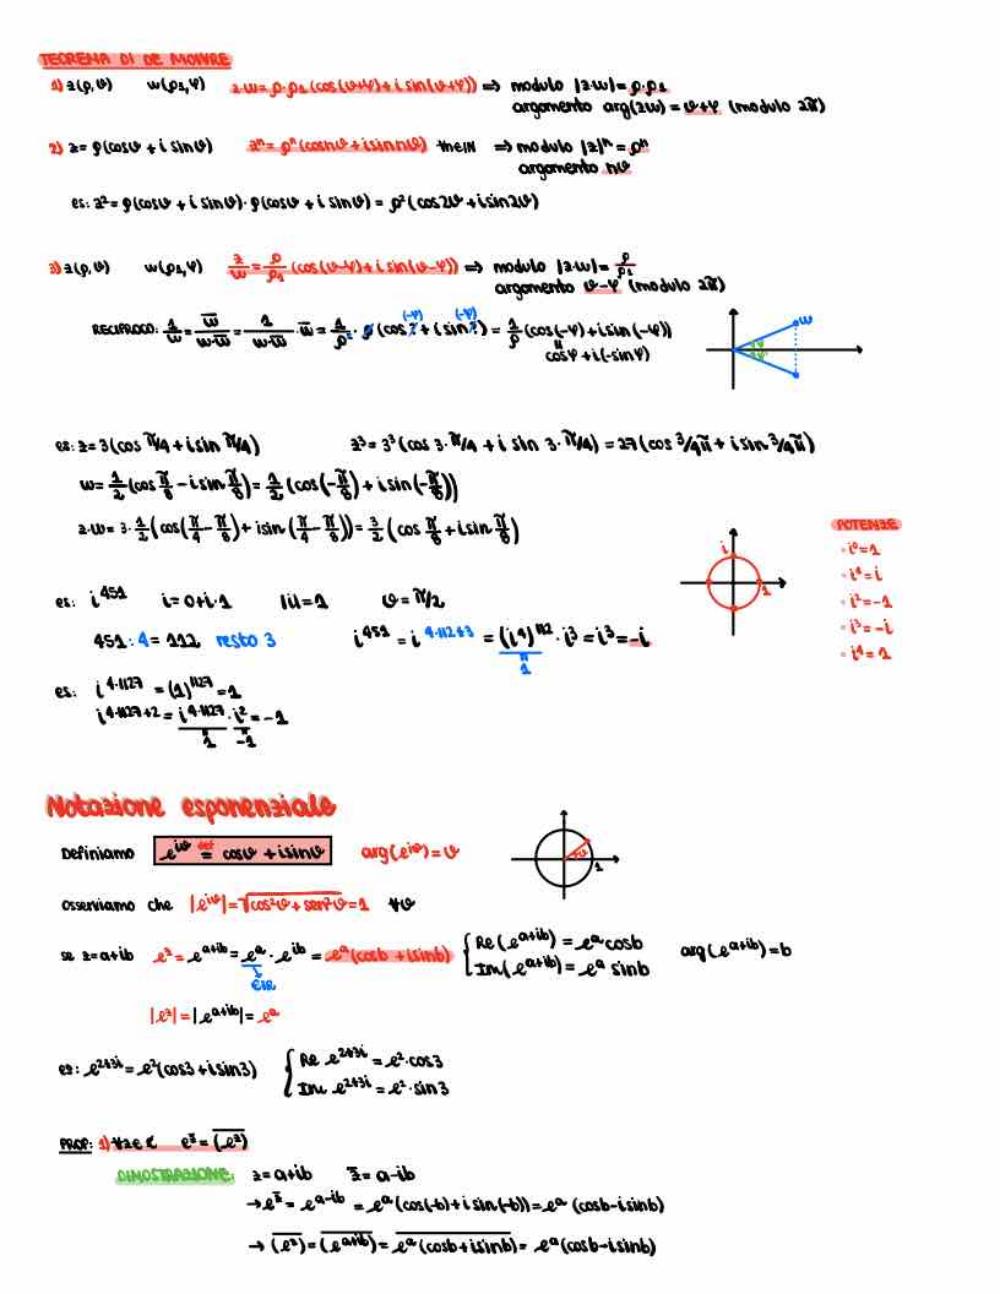 TEOREMA DI DE MOIVRE
1) z(ρ,θ) w(ρ₁,φ) z·w=ρ·ρ₁(cos(θ+φ)+i sin(θ+φ)) ⇒ modulo |z·w|=ρ·ρ₁
argomento arg(zw)=θ+φ (modulo 2π)
2) z=ρ(cosθ+i sinθ) zⁿ=ρⁿ(cosnθ+isinnθ) ∀n∈ℕ ⇒ modulo |z|ⁿ=ρⁿ
argomento nθ
es: z²=ρ(cosθ+i sinθ)·ρ(cosθ+i sinθ)=ρ²(cos2θ+isin2θ)
3) z(ρ,θ) w(ρ₁,φ) z/w=ρ/ρ₁(cos(θ-φ)+i sin(θ-φ)) ⇒ modulo |z·w|=ρ/ρ₁
argomento θ-φ (modulo 2π)
RECIPROCO: 1/w = w̅/(w·w̅) = 1/(w·w̅)·w̅ = 1/ρ²·ρ(cos(-φ)+i sin(-φ)) = 1/ρ(cos(-φ)+isin(-φ))
cosφ+i(-sinφ)
w
φ
es: z=3(cos π/4+isin π/4) z³=3³(cos 3·π/4+i sin 3·π/4)=27(cos 3/4π+i sin 3/4π)
w=1/2(cos π/8-isin π/8)=1/2(cos(-π/8)+isin(-π/8))
z·w=3·1/2(cos(π/4-π/8)+isin(π/4-π/8))=3/2(cos π/8+isin π/8)
POTENZE
i 1
· i⁰=1
· i¹=i
· i²=-1
· i³=-i
· i⁴=1
es: i⁴⁵¹ i=0+i·1 |i|=1 θ=π/2
451:4=112 resto 3 i⁴⁵¹=i^(4·112+3)=(i⁴)¹¹²·i³=i³=-i
1
es: i^(4·1127)=(1)¹¹²⁷=1
i^(4·1127+2)=i^(4·1127)·i²=-1
1 -1
Notazione esponenziale
Definiamo e^(iθ) def= cosθ+isinθ arg(e^(iθ))=θ
θ 1
osserviamo che |e^(iθ)|=√(cos²θ+sen²θ)=1 ∀θ
se z=a+ib e^z=e^(a+ib)=e^a·e^(ib)=e^a(cosb+isinb) { Re(e^(a+ib))=e^a cosb arg(e^(a+ib))=b
Im(e^(a+ib))=e^a sinb
∈ℝ
|e^z|=|e^(a+ib)|=e^a
es: e^(2+3i)=e²(cos3+isin3) { Re e^(2+3i)=e²·cos3
Im e^(2+3i)=e²·sin3
PROP: 1) ∀z∈ℂ e^z̅=\overline{(e^z)}
DIMOSTRAZIONE: z=a+ib z̅=a-ib
→e^z̅=e^(a-ib)=e^a(cos(-b)+isin(-b))=e^a(cosb-isinb)
→\overline{(e^z)}=\overline{(e^(a+ib))}=\overline{e^a(cosb+isinb)}=e^a(cosb-isinb)